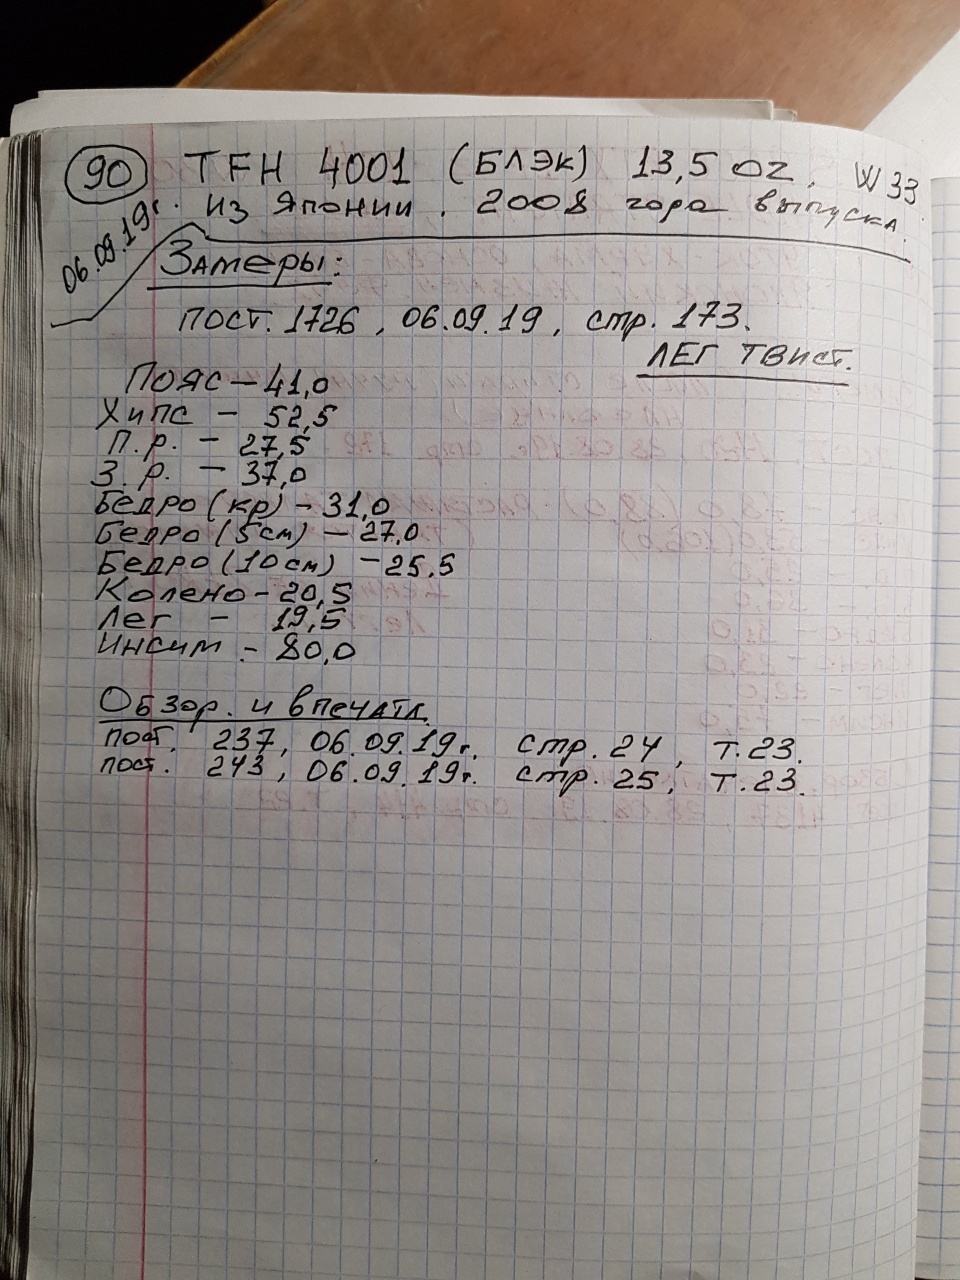 90 TFH 4001 (БЛЭК) 13,5 OZ. W33.
06.09.19г. из Японии. 2008 года выпуска.
Замеры:
пост. 1726, 06.09.19, стр. 173.
ЛЕГ ТВИСТ.
Пояс – 41,0
Хипс – 52,5
П.р. – 27,5
З.р. – 37,0
Бедро (кр) – 31,0
Бедро (5см) – 27,0
Бедро (10см) – 25,5
Колено – 20,5
Лег – 19,5
Инсим – 80,0
Обзор. и впечатл.
пост. 237, 06.09.19г. стр. 24, т.23.
пост. 243, 06.09.19г. стр. 25, т.23.